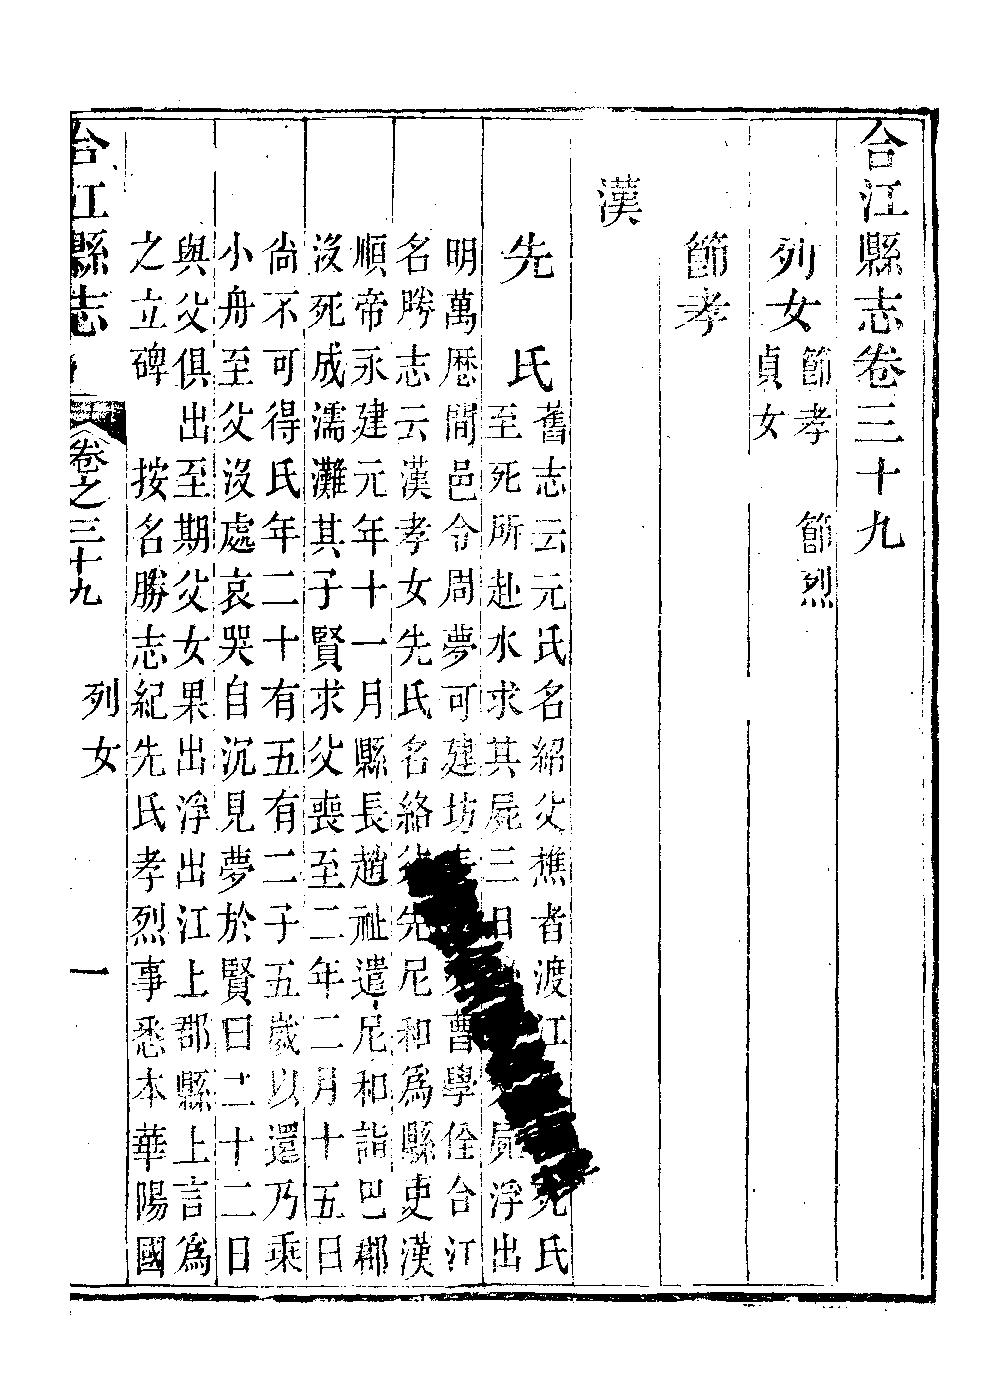 合江縣志卷三十九
列女 節孝 節烈
貞女
節孝
漢
先氏
舊志云元氏名紹父樵者渡江死氏
至死所赴水求其屍三日屍浮出
明萬歷間邑令周夢可建坊曹學佺合江
名勝志云漢孝女先氏名絡先尼和為縣吏漢
順帝永建元年十一月縣長趙祉遣尼和詣巴郡
沒死成濡灘其子賢求父喪至二年二月十五日
尙不可得氏年二十有五有二子五歲以還乃乘
小舟至父沒處哀哭自沉見夢於賢曰二十二日
與父俱出至期父女果出浮出江上郡縣上言爲
之立碑 按名勝志紀先氏孝烈事悉本華陽國
合江縣志 卷之三十九 列女 一